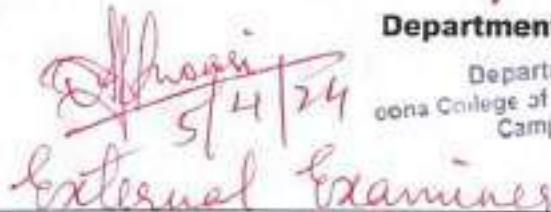 Departmen
Depart
oona College of
Camp
5/4/24
External Examiner